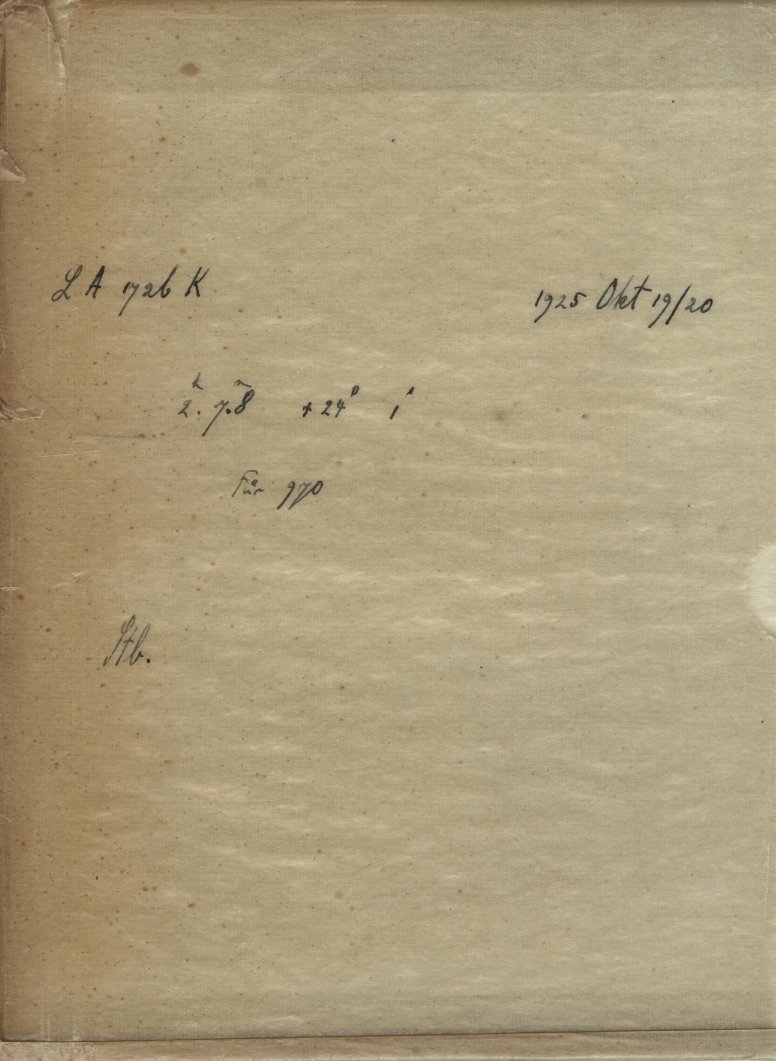 L A 1726 K 1925 Okt 19/20
2ʰ. 7ᵐ.8 +24° 1'
Für 970
Stb.